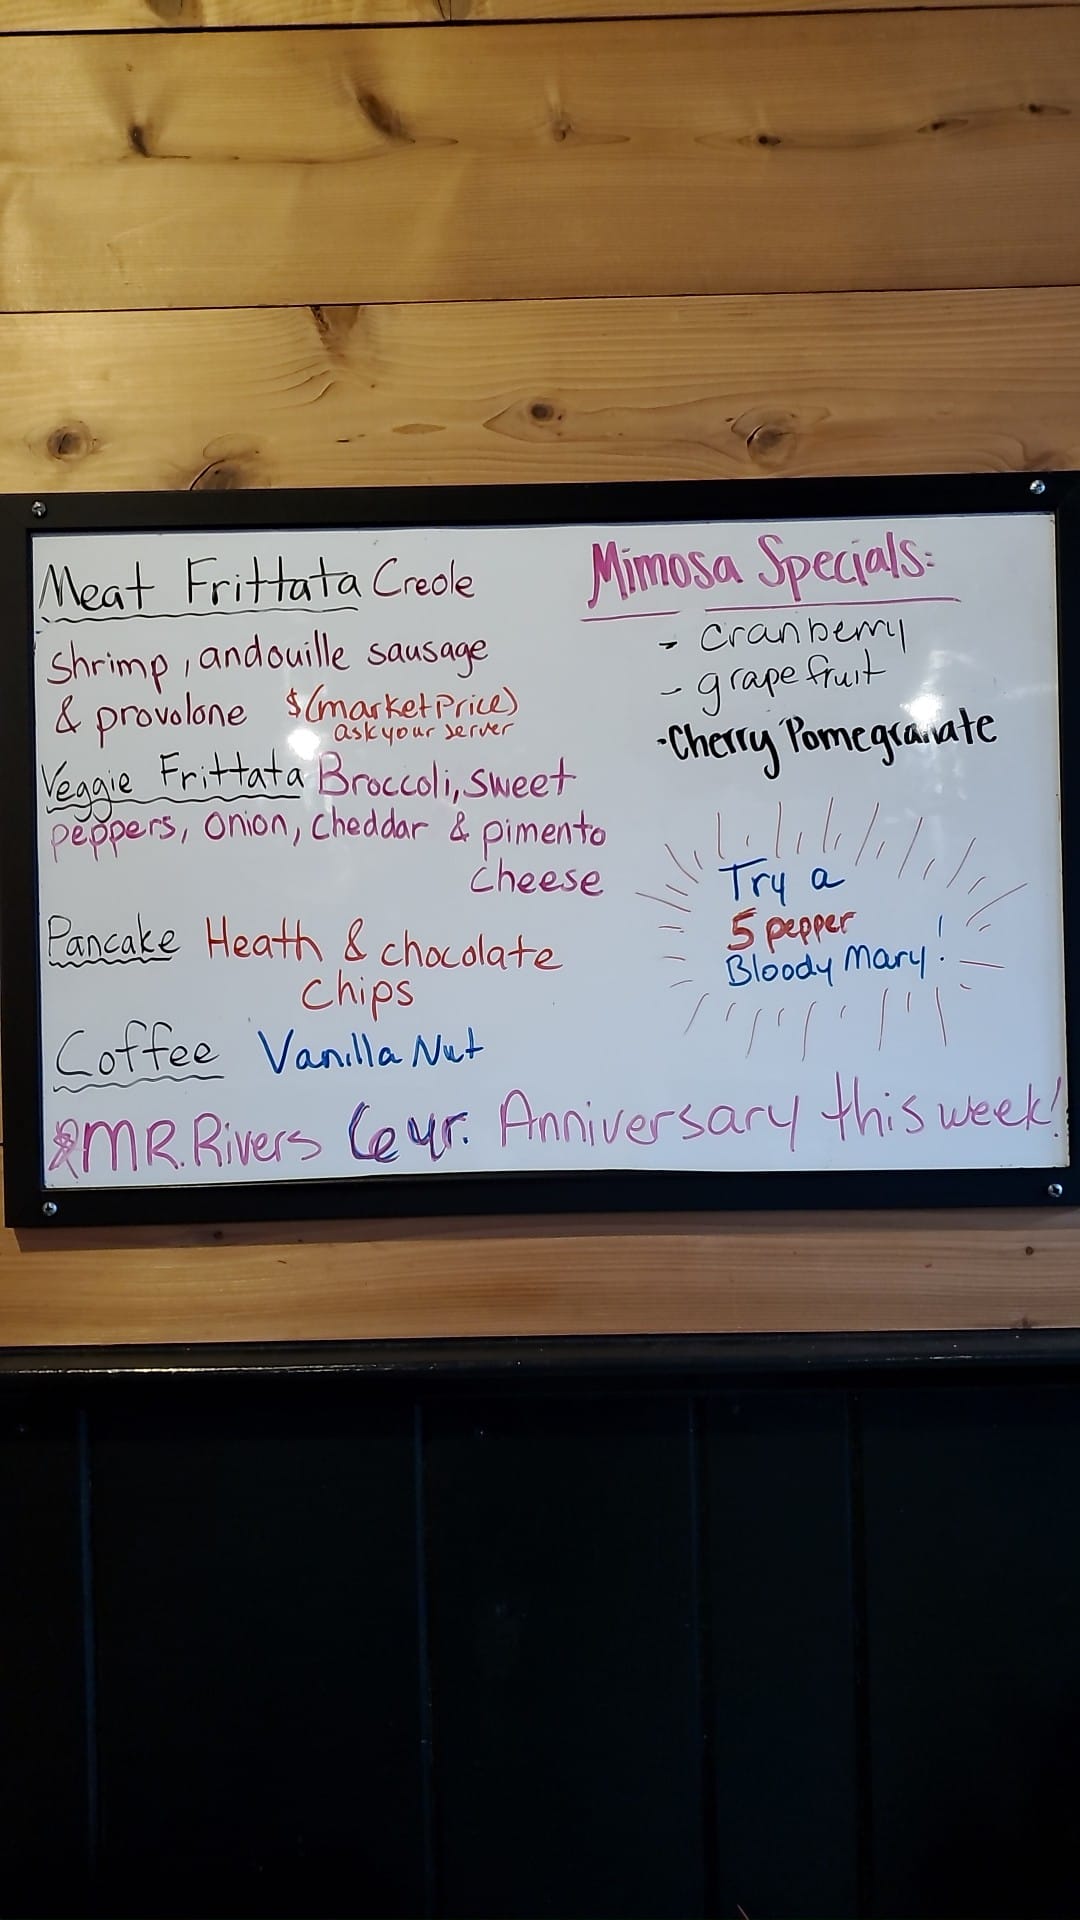 Meat Frittata Creole
Shrimp, andouille sausage
& provolone $(market Price)
ask your server
Veggie Frittata Broccoli, sweet
peppers, onion, cheddar & pimento
cheese
Pancake Heath & chocolate
chips
Coffee Vanilla Nut
Mimosa Specials:
- cranberry
- grapefruit
- Cherry Pomegranate
Try a
5 pepper
Bloody Mary!
MR. Rivers 6 yr. Anniversary this week!